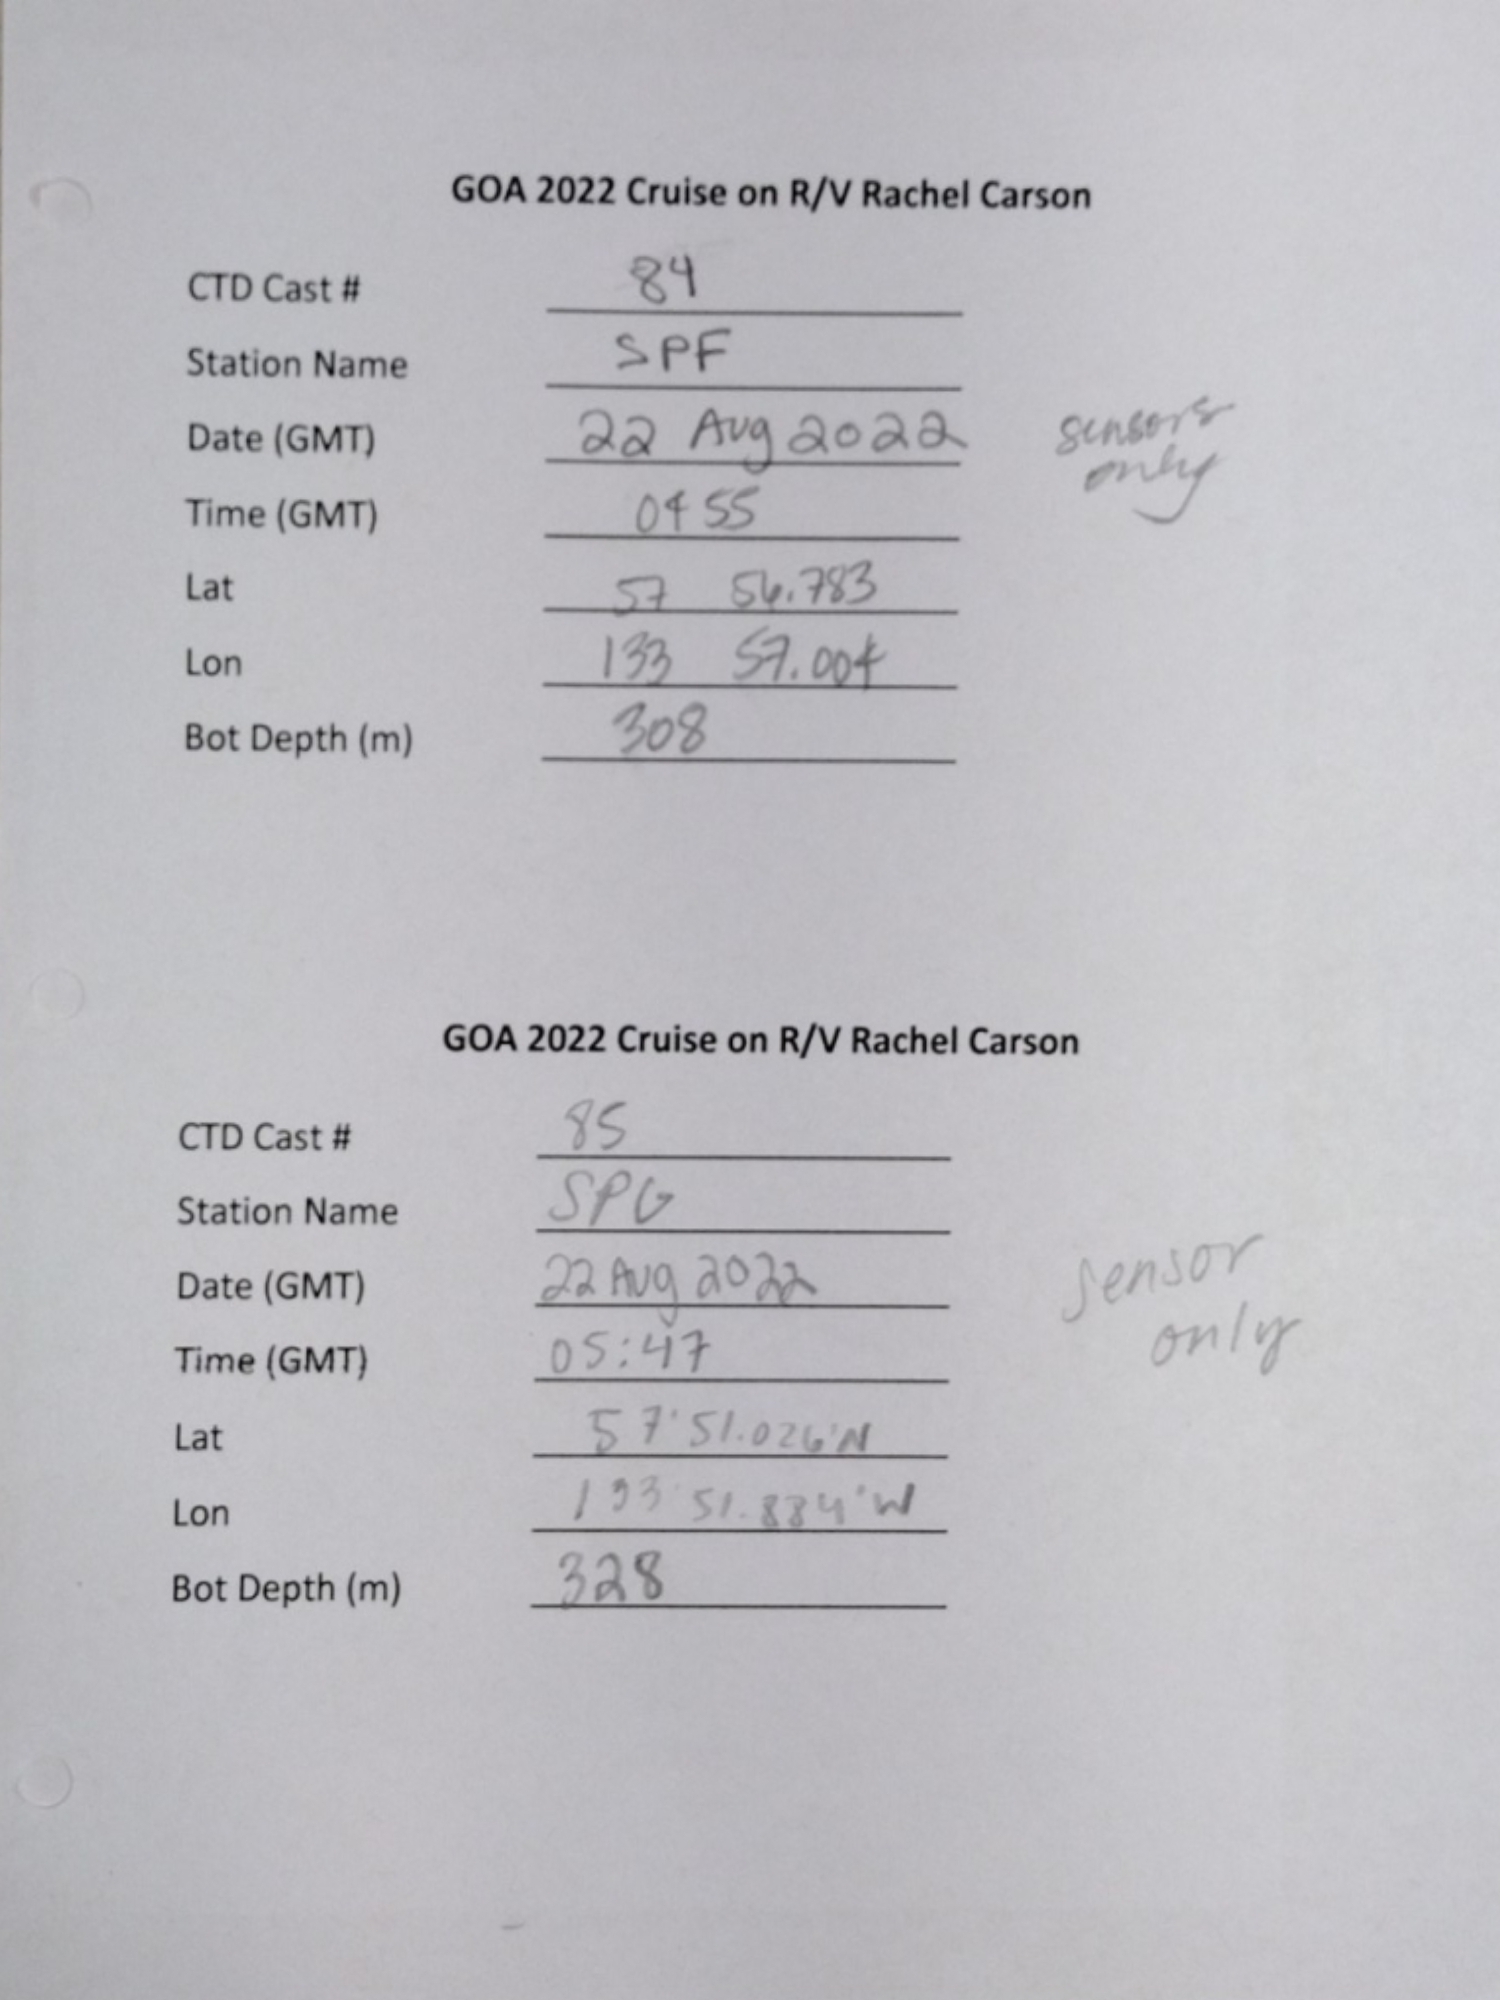 GOA 2022 Cruise on R/V Rachel Carson
CTD Cast # 84
Station Name SPF
Date (GMT) 22 Aug 2022
sensors
only
Time (GMT) 0455
Lat 57 56.783
Lon 133 57.004
Bot Depth (m) 308
GOA 2022 Cruise on R/V Rachel Carson
CTD Cast # 85
Station Name SPG
Date (GMT) 22 Aug 2022
sensor
only
Time (GMT) 05:47
Lat 57°51.026'N
Lon 133°51.884'W
Bot Depth (m) 328